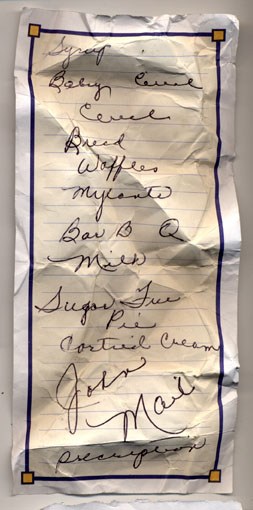 Syrup
Baby Cereal
Cereal
Bread
Waffles
Mylanta
Bar B Q
Milk
Sugar Free
Pie
Cortied Cream
John
Mail
prescription